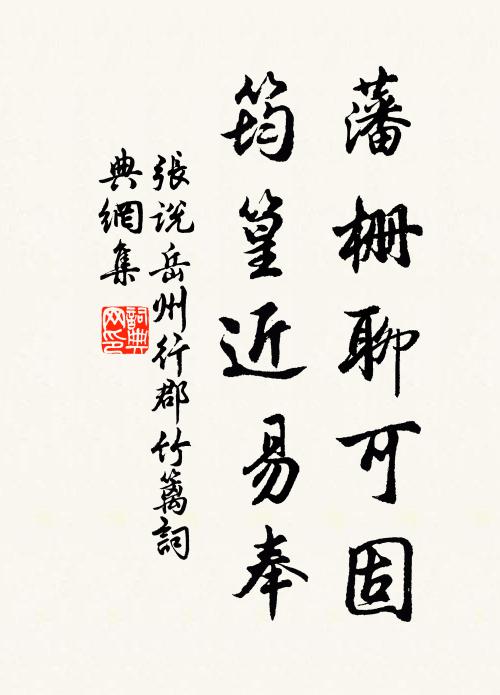 藩柵聊可固
筠篁近易奉
張說岳州行郡竹籬詞
典網集
詞典
网印